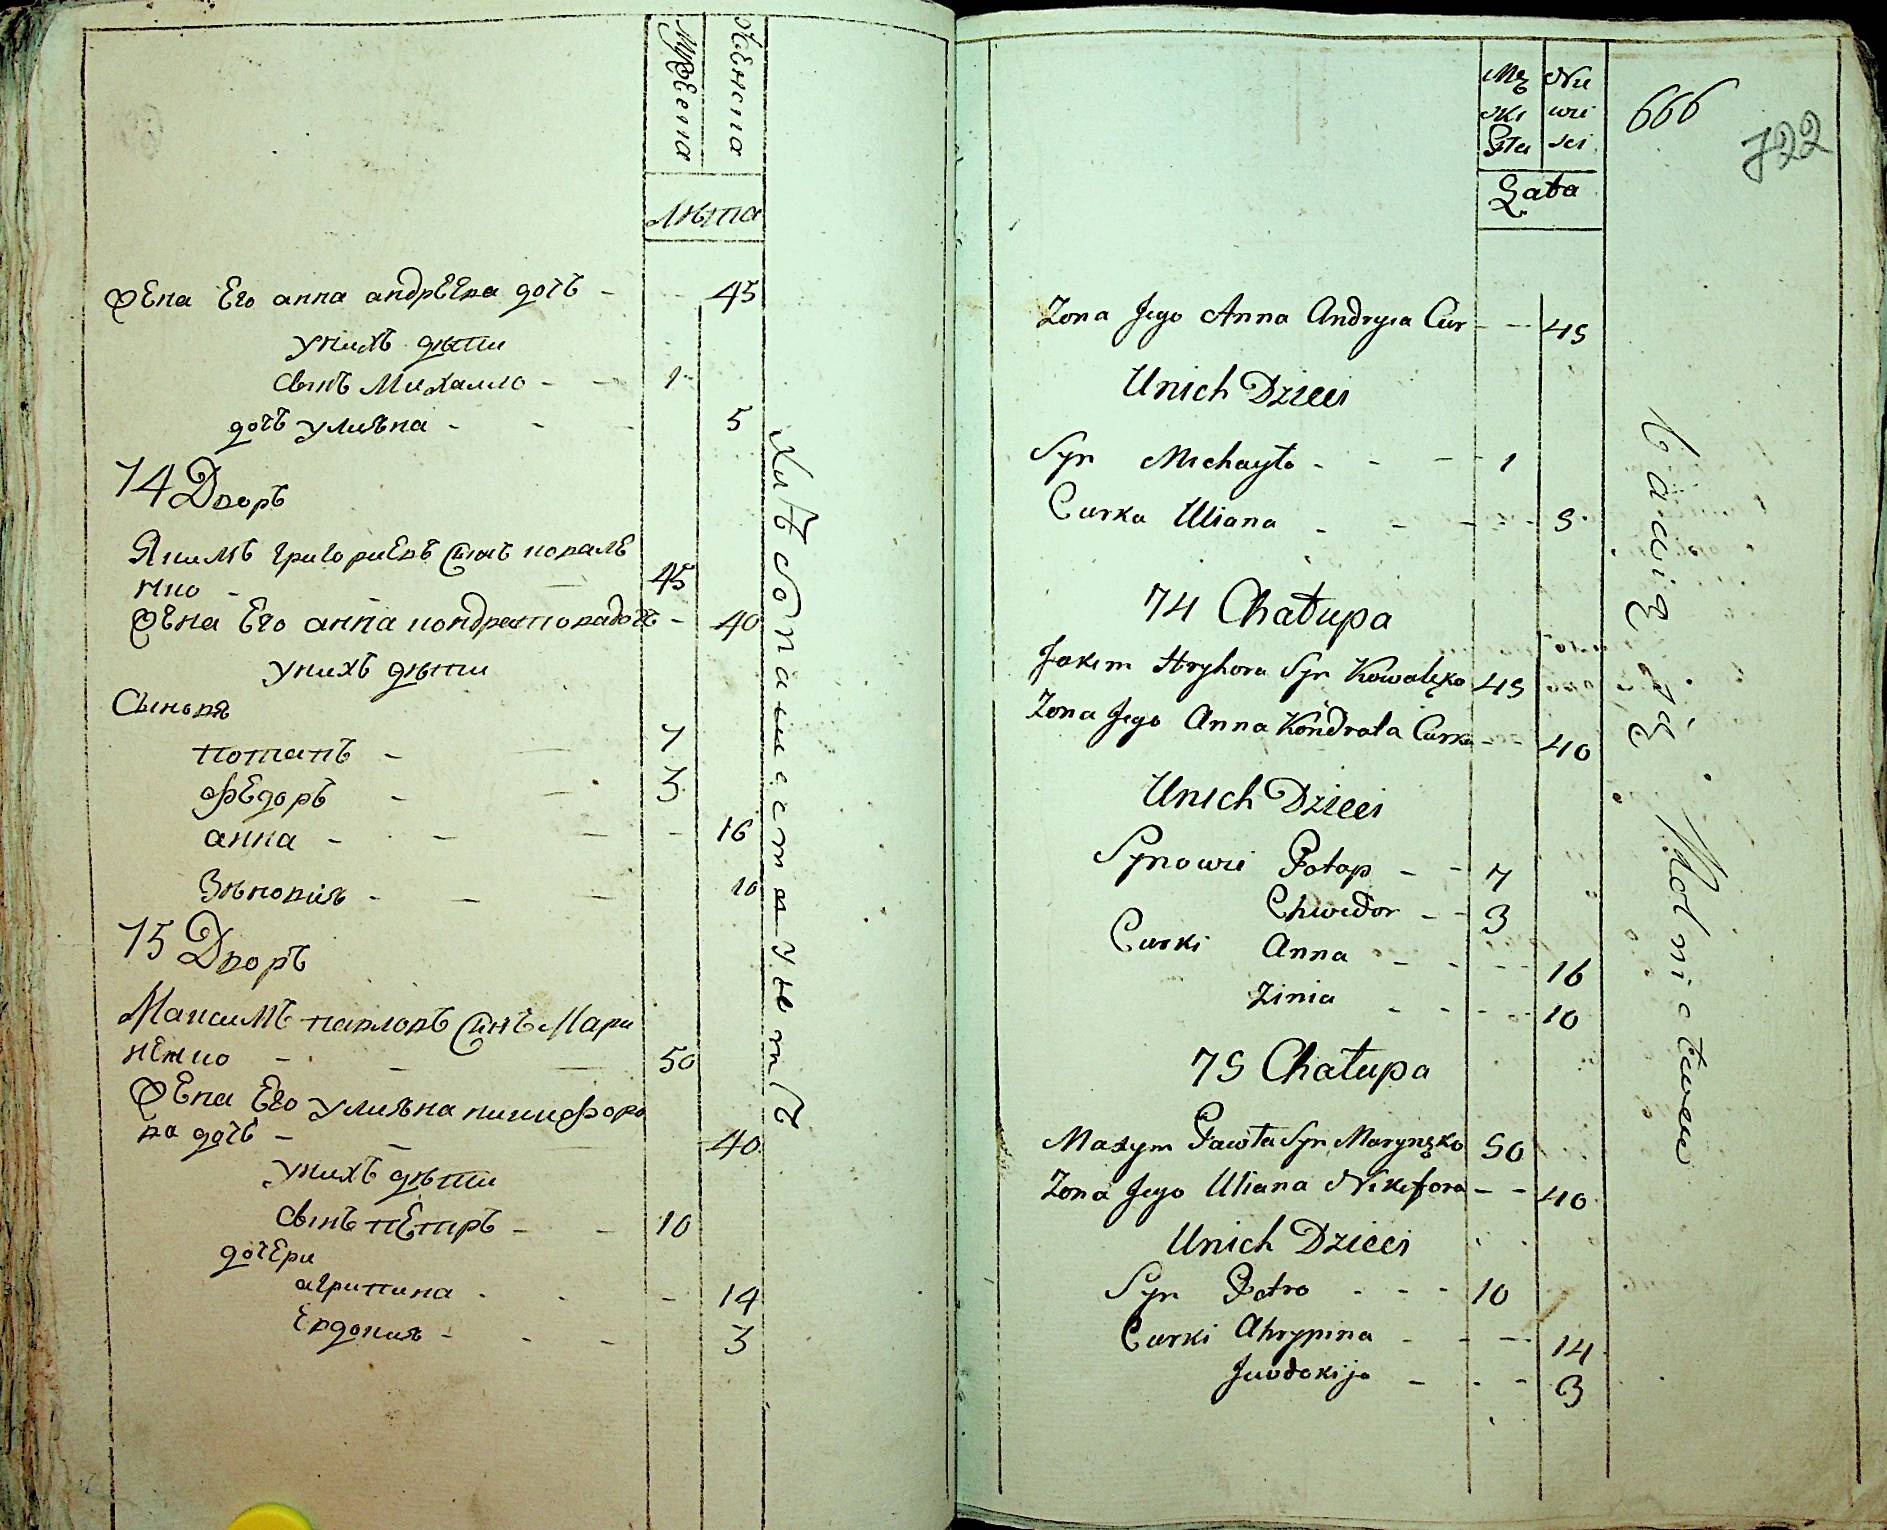 Мужеска
Женска
Лѣта
Жена Его анна андрѣЕва дочь - - 45
унихъ дѣти
Сынъ Михаило - - 1
дочь улияна - - - 5
74 Дворъ
Якимъ григориЕвъ Сынъ ковалЕ
нко - 45
Жена Его анна кондратовадочь - 40
унихъ дѣти
Сыновя
потапъ - 7
фЕдоръ - 3
анна - - - - 16
Зѣновия - - - 10
75 Дворъ
Максимъ павловъ Синъ Мари
нЕнко - - 50
Жена Его улияна никифоро
ва дочь - - 40
унихъ дѣти
Сынъ пЕтръ - - 10
дочЕри
агрипина - - - 14
Евдокия - - - 3
Хлѣбопашествуютъ
Mę Nie
ski wie
Płta sci
Lata
666
722
Zona Jego Anna Andryia Cur - - 45
Unich Dzieci
Syn Michayło - - - 1
Curka Uliana - - - - 5
74 Chałupa
Jakim Hryhora Syn Kowalęko 45
Zona Jego Anna Kondrata Curka - - 40
Unich Dzieci
Synowie Potap - - 7
Chwedor - - 3
Curki Anna - - - - 16
Zinia - - - - 10
75 Chałupa
Maxym Pawła Syn Marynęko 50
Zona Jego Uliana Nikifora - - 40
Unich Dzieci
Syn Petro - - - 10
Curki Ahrypina - - - 14
Jewdokija - - - 3
bawią się Rolnictwem